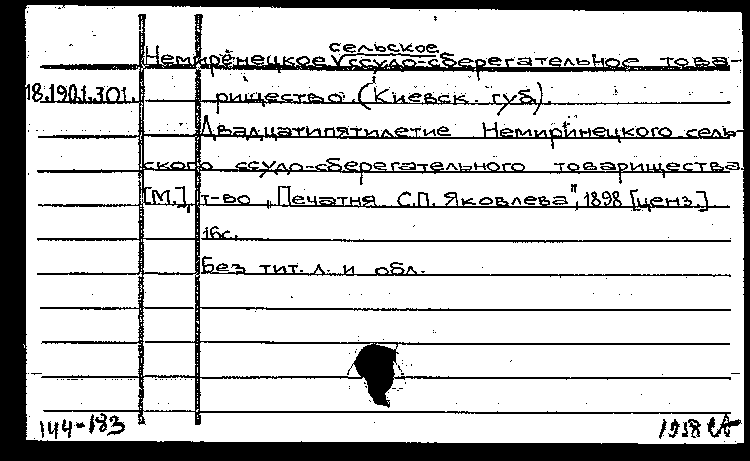 сельское
Немирѐнецкое ∨ ссудо-сберегательное това-
18.190.1.301. рищество. (Киевск. губ).
Двадцатипятилетие Немиринецкого сель-
ского ссудо-сберегательного товарищества.
[М.], т-во „Печатня С.П. Яковлева", 1898 [ценз.].
16с.
Без тит. л. и обл.
144-183 1938